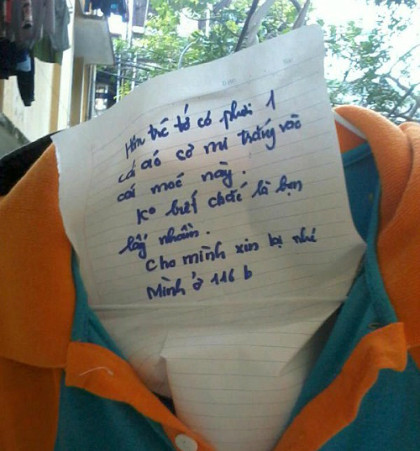 Hôm trc tớ có phơi 1
cái áo cờ mi trắng vào
cái moé này.
Ko biết chắc là bạn
lấy nhầm.
Cho mình xin lại nhé
Mình ở 116 b